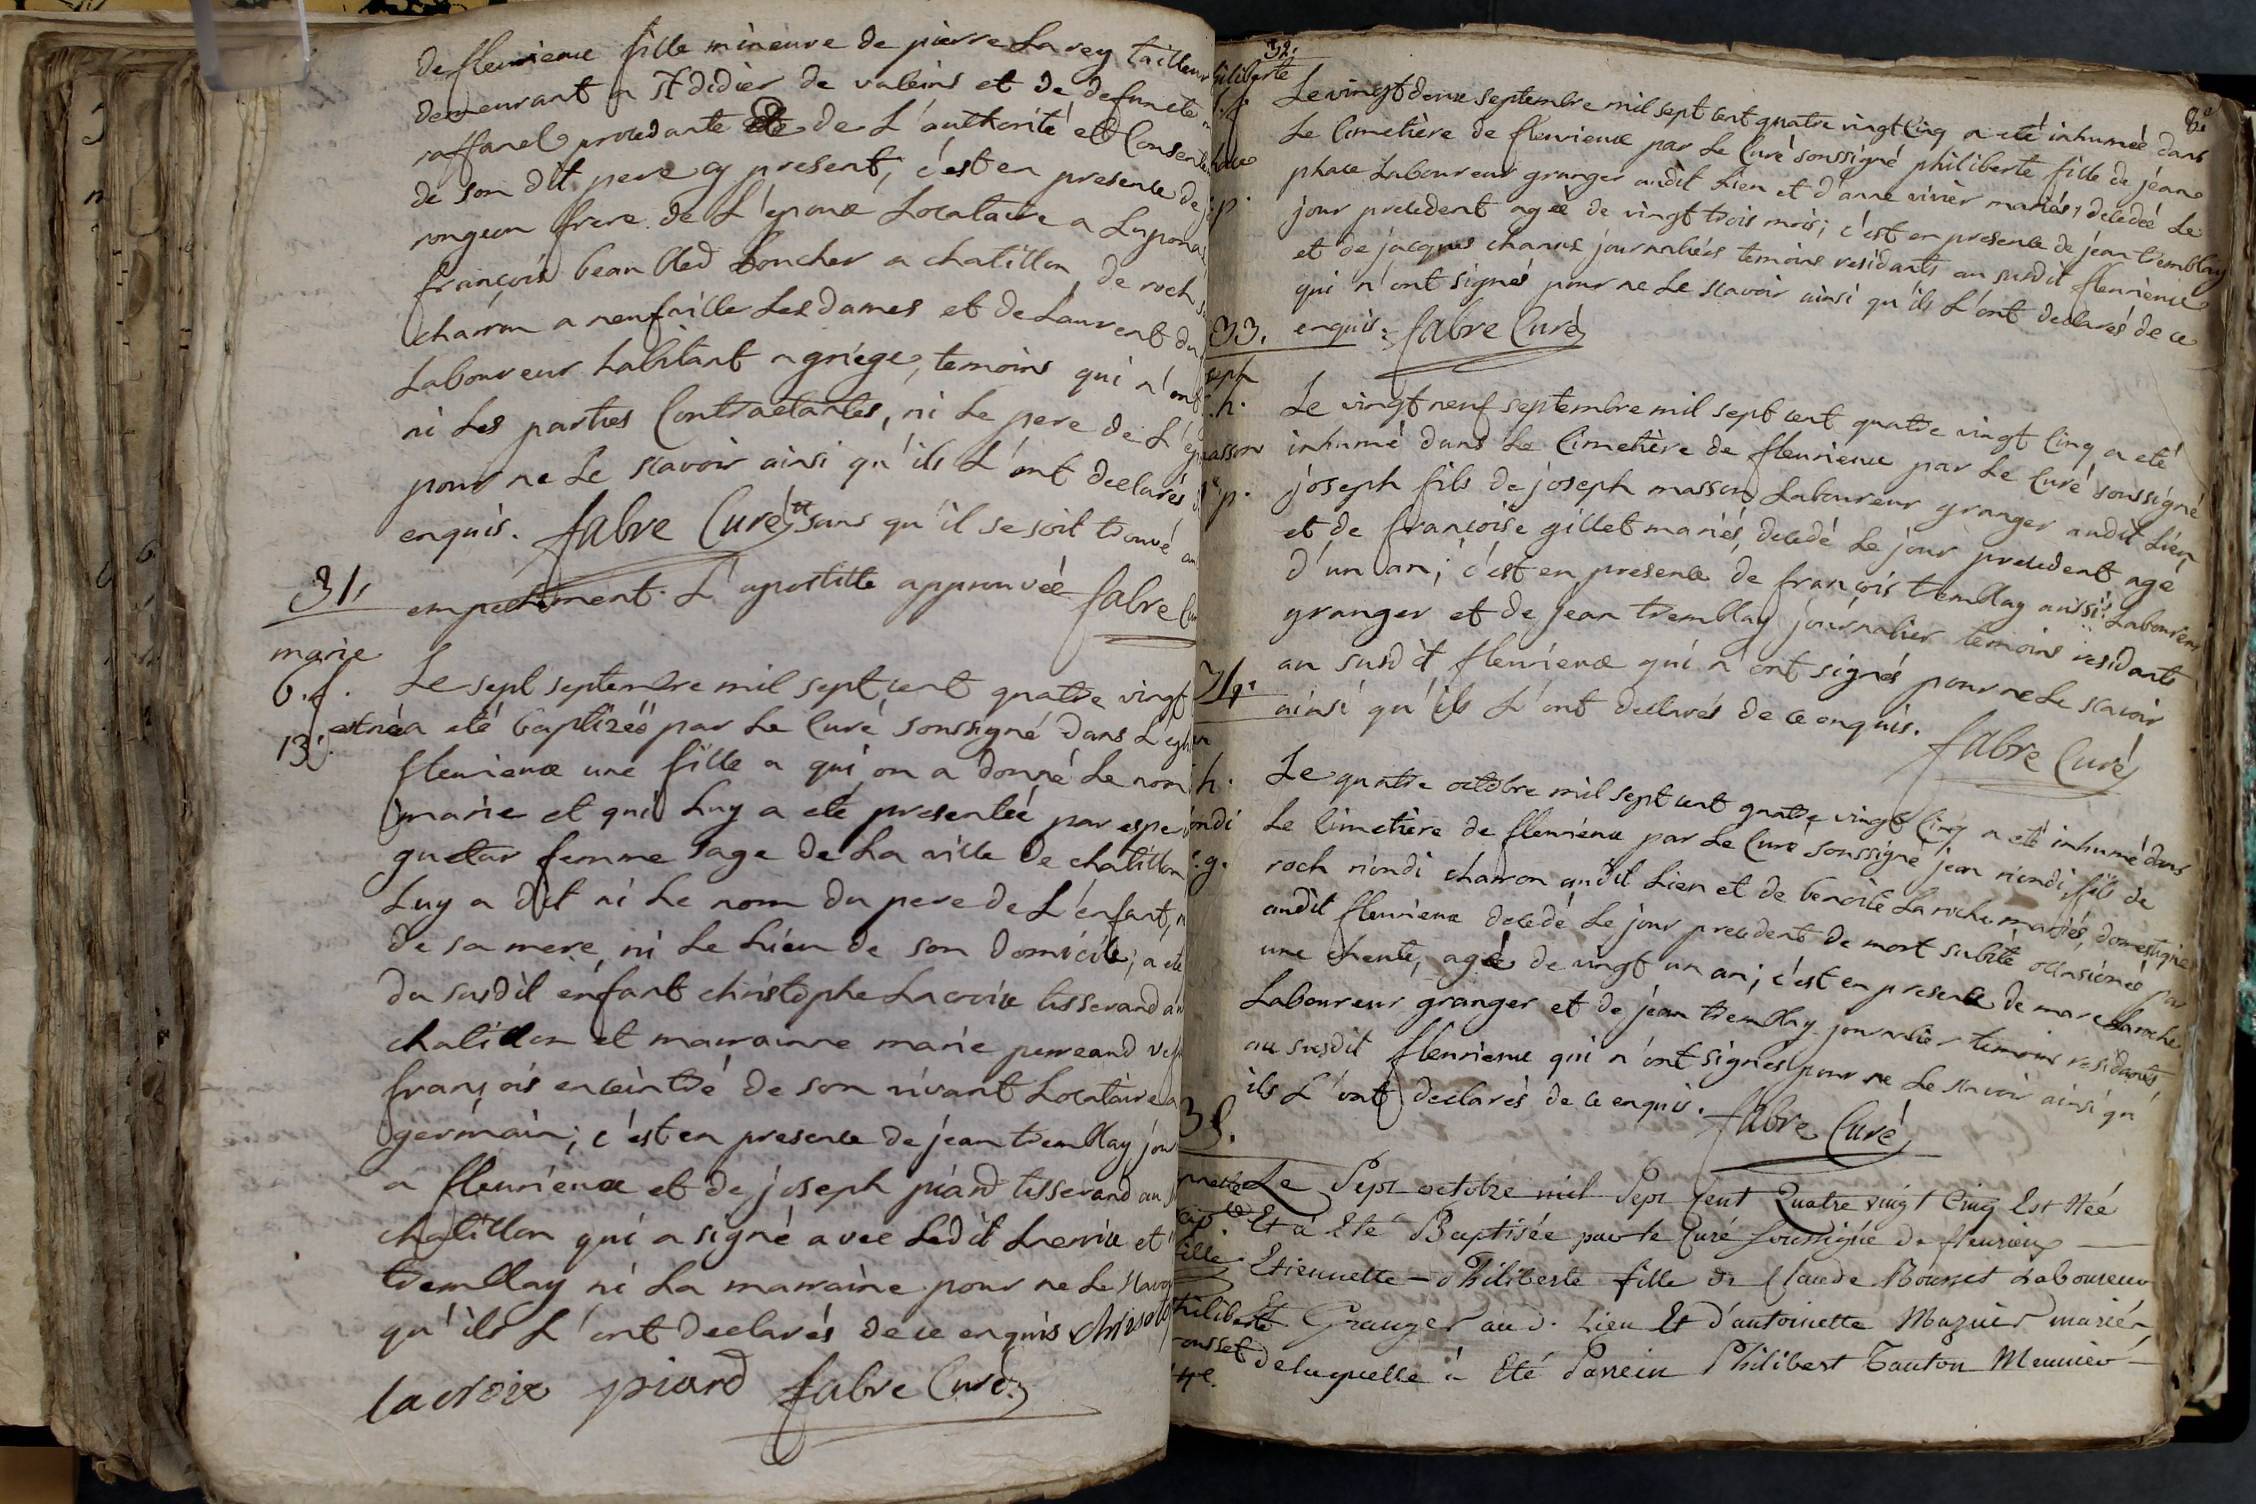 de fleurieux fille mineure de pierre Larey tailleur
demeurant a St didier de valeins et de defuncte
raffanel procedante de L'authorité et Consente
de son dit pere cy present, c'est en presence de
rongeon frere de L'epoux Locataire a Laponas
françois beau bled boucher a chatillon, de roch
charron a neufville Les dames et de Laurent du
Laboureur habitant a griege, temoins qui n'ont
ni Les parties Contractantes, ni Le pere de L'ep
pour ne Le scavoir ainsi qu'ils L'ont declarés
enquis. fabre Curé sans qu'il se soit trouvé au
empechement. L'apostille approuvée fabre Cur
31.
marie
b. f.
13.
Le sept septembre mil sept cent quatre vingt
est née a eté baptizée par Le Curé soussigné dans L'egli
fleurieux une fille a qui on a donné Le nom
marie et qui Luy a eté presentée par
femme sage de La ville de chatillon
Luy a dit ni Le nom du pere de L'enfant, n
de sa mere, ni Le Lieu de son domicile; a eté
du susdit enfant christophe Lacroix tisserand a
chatillon et marrainne marie perreaud
françois enceintré de son vivant Locataire a
germain; c'est en presence de jean tremblay jour
a fleurieux et de joseph piard tisserand au
chatillon qui a signé avec Ledit Lacroix et
tremblay ni La marraine pour ne Le scavo
qu'ils L'ont declarés de ce enquis
lacroix piard fabre Curé
32.
philiberte
Le vingt deux septembre mil sept cent quatre vingt Cinq a eté inhumée dans
Le Cimetière de fleurieux par Le Curé soussigné philiberte fille de jean
phace Laboureur granger audit Lieu et d'anne vivier mariés, decedée Le
jour precedent agée de vingt trois mois; c'est en presence de jean tremblay
et de jacques chanus journaliers temoins residants au susdit fleurieux
qui n'ont signés pour ne Le scavoir ainsi qu'ils L'ont declarés de ce
enquis. fabre Curé
33.
seph
h.
asson
p.
Le vingt neuf septembre mil sept cent quatre vingt Cinq a eté
inhumé dans Le Cimetière de fleurieux par Le Curé soussigné
joseph fils de joseph masson Laboureur granger audit Lieu
et de françoise gillet mariés, decedé Le jour precedent agé
d'un an; c'est en presence de françois tremblay aussi Laboureur
granger et de jean tremblay journalier temoins residants
au susdit fleurieux qui n'ont signés pour ne Le scavoir
ainsi qu'ils L'ont declarés de ce enquis.
fabre Curé
34.
h.
ondi
g.
Le quatre octobre mil sept cent quatre vingt Cinq a eté inhumé dans
Le Cimetière de fleurieux par Le Curé soussigné jean riondi fils de
roch riondi charron audit Lieu et de benoite Laroche mariés, domestique
audit fleurieux decedé Le jour precedent de mort subite occasionée par
une chente, agé de vingt un an; c'est en presence de marc Laroche
Laboureur granger et de jean tremblay journalier temoins residants
au susdit fleurieux qui n'ont signés pour ne Le scavoir ainsi qu'
ils L'ont declarés de ce enquis. fabre Curé
35.
nette
fille
hiliberte
ousset
Le Sept octobre mil Sept Cent Quatre vingt Cinq Est Née
Et a Eté Baptisée par le Curé Soussigné de fleurieux
Etiennette - Philiberte fille de Claude Rousset Laboureur
Et Granger aud. Lieu Et d'antoinette Mazuir mariés,
de laquelle à Eté Parrein Philibert Tanton Meunier